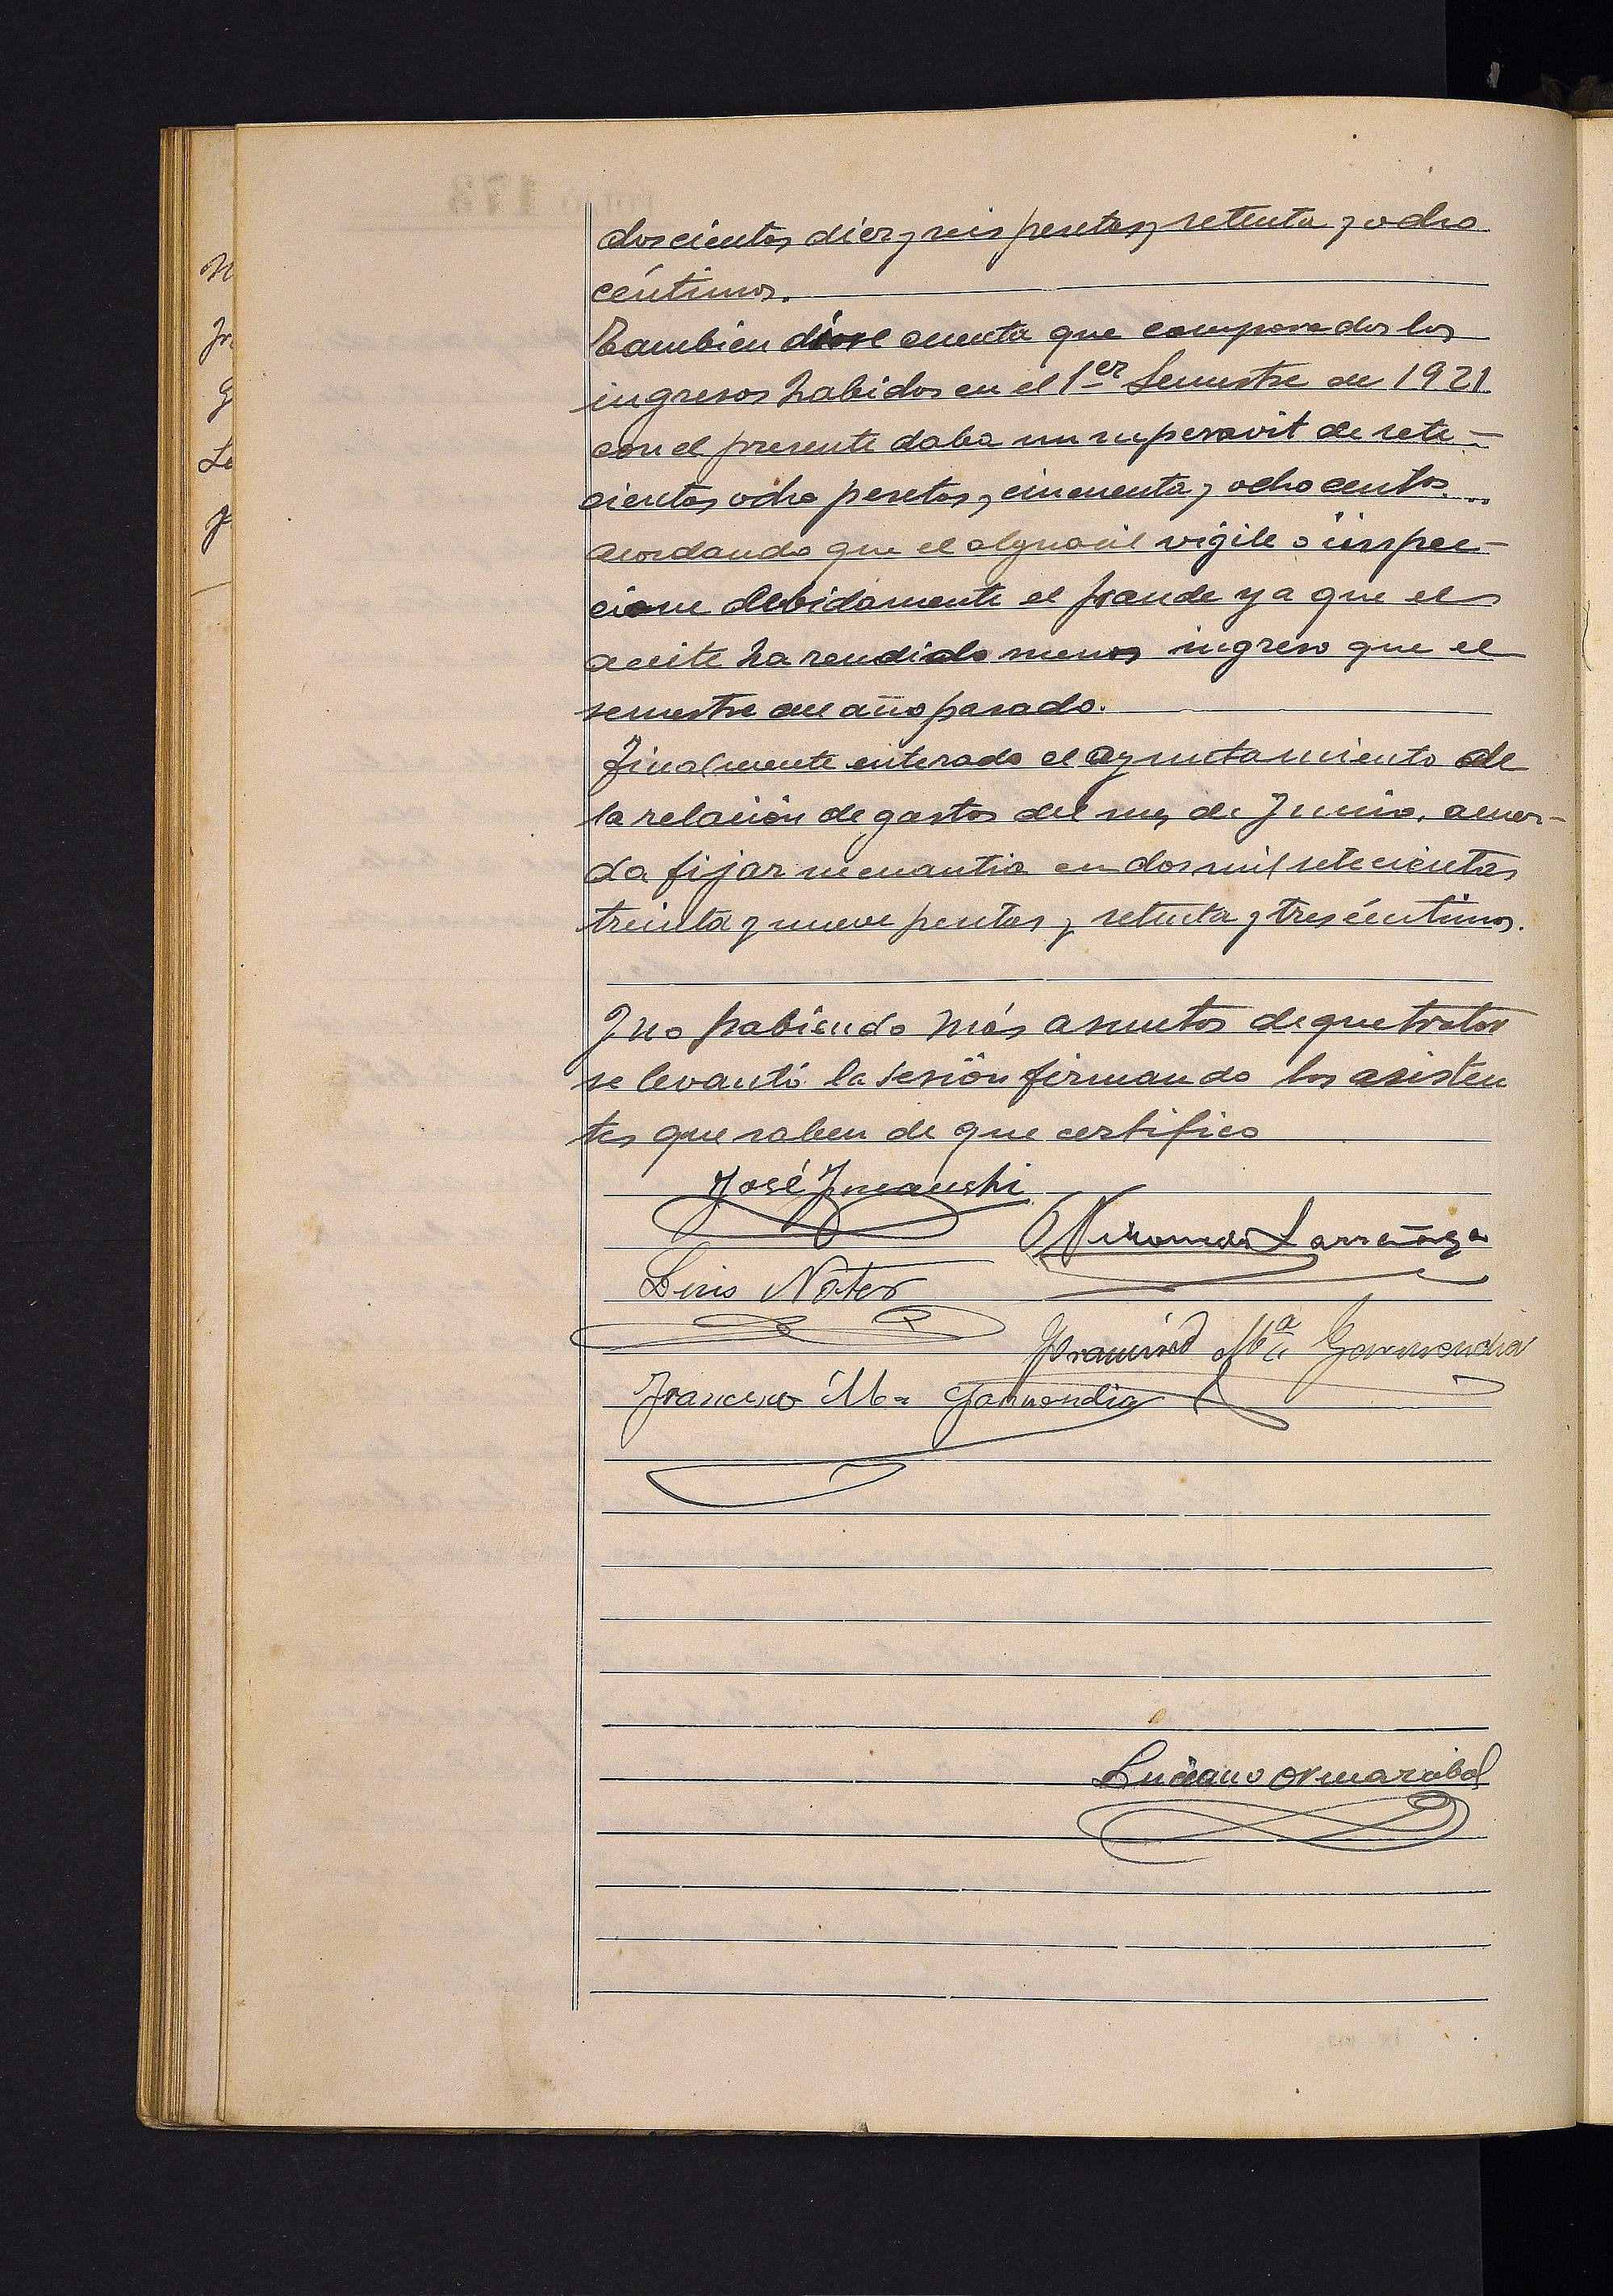 doscientas diez y seis pesetas y setenta y ocho
céntimos.
Tambien diose cuenta que comparados los
ingresos habidos en el 1er Semestre de 1921
con el presente daba un superavit de sete-
cientas ocho pesetas y cincuenta y ocho cents.
acordando que el alguacil vigile ó inspec-
cione debidamente el fraude ya que el
aceite ha rendido menos ingreso que el
semestre del año pasado.
Finalmente enterado el ayuntamiento de
la relación de gastos del mes de Junio, acuer-
da fijar su cuantia en dos mil setecientas
treinta y nueve pesetas y setenta y tres céntimos.
Y no habiendo más asuntos de que tratar
se levantó la sesión firmando los asisten
tes que saben de que certifico
José
Larrañaga
Luis
Francisco Mª Garmendia
Francisco Mª Garmendia
Luciano Ormazabal